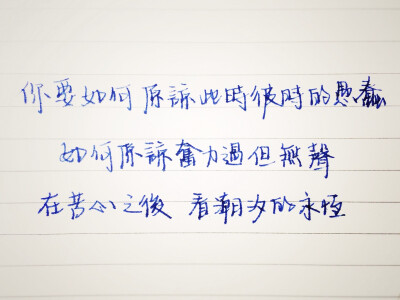 你要如何原諒此時彼時的愚蠢
如何原諒奮力過但無聲
在苦心之後 看潮汐的永恆